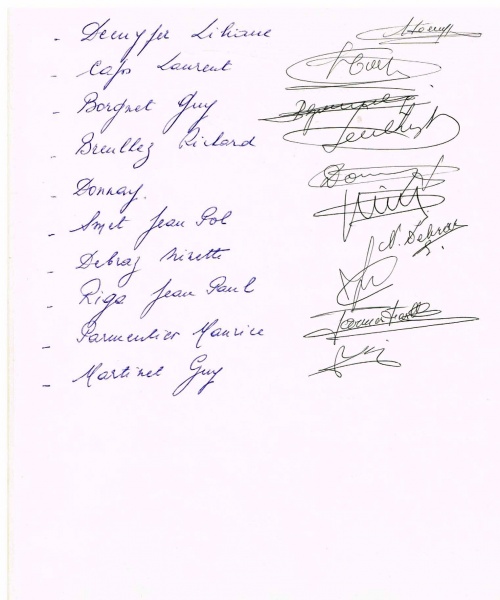 - Demyper Liliane
- Caps Laurent
- Borgnet Guy
- Breullez Richard
- Donnay.
- Smet Jean Pol
- Debraz Mirette
- Riga Jean Paul
- Parmentier Maurice
- Martinet Guy
N. Debraz